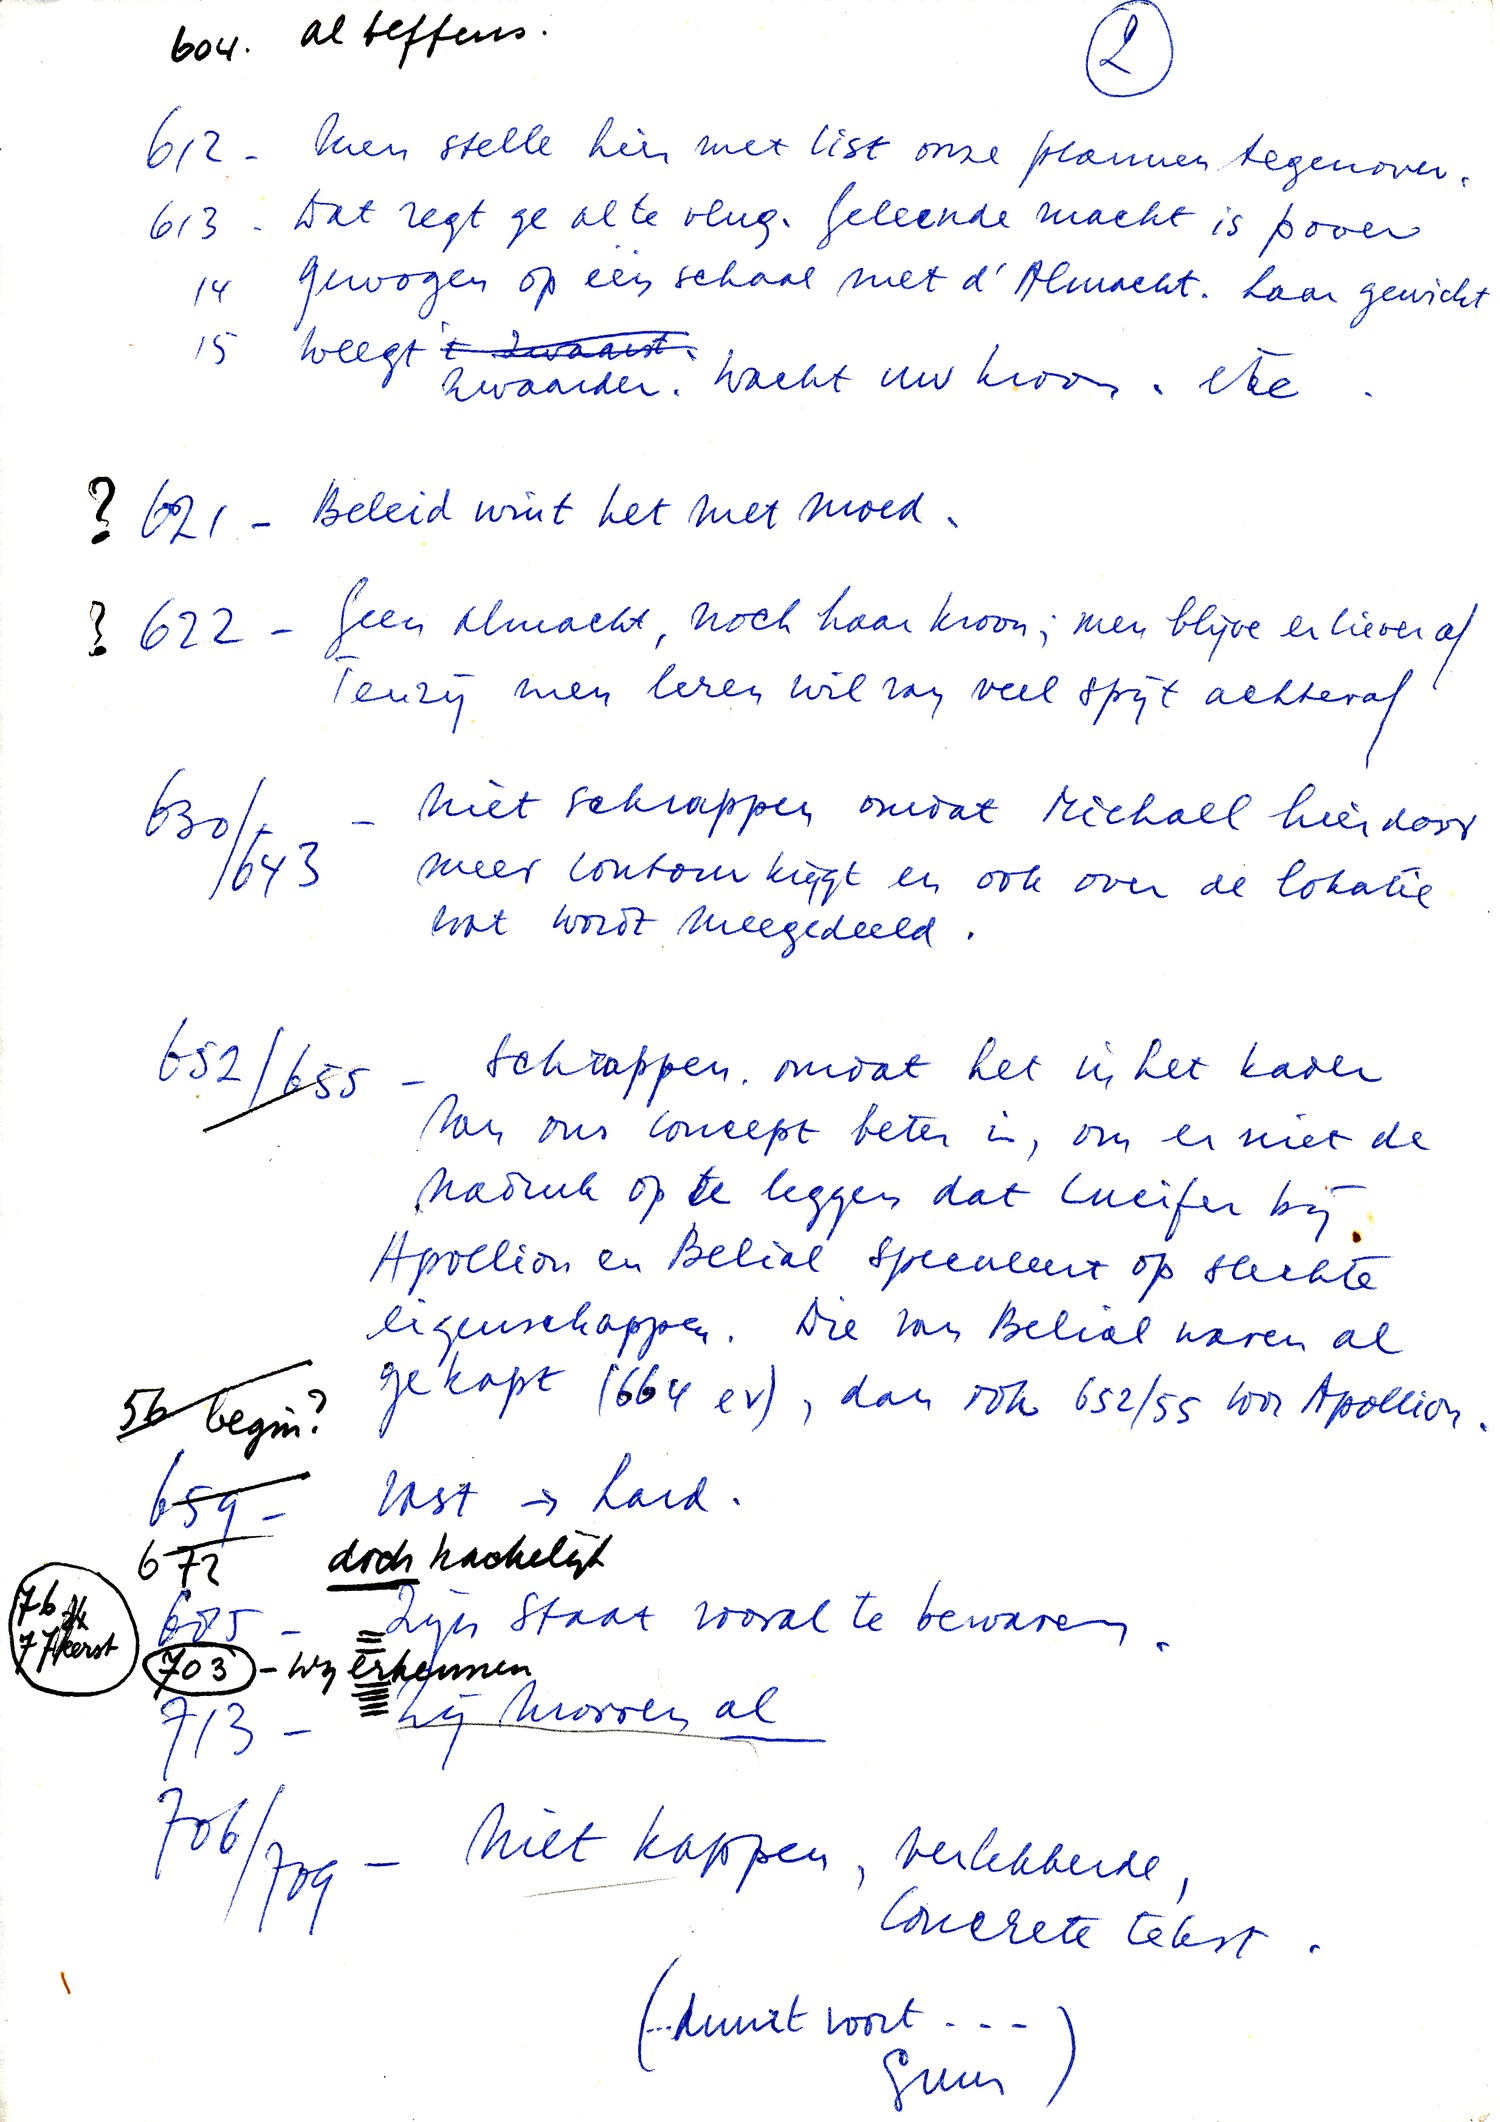 604. al teffens.
2
612 - Men stelle hier met list onze plannen tegenover.
613 - Dat zegt ge al te vlug. Geleende macht is pover
14 Gewogen op een schaal met d' Almacht. Haar gewicht
15 Weegt 't zwaarst.
zwaarder. Wacht uw kroon. etc.
? 621 - Beleid wint het met moed.
? 622 - Geen Almacht, noch haar kroon; men blijve er liever af
Tenzij men leren wil van veel spijt achteraf
630/ - Niet schrappen omdat Michael hierdoor
643 meer contour krijgt en ook over de lokatie
wat wordt meegedeeld.
652/655 - Schrappen. omdat het in het kader
van ons concept beter is, om er niet de
nadruk op te leggen dat Lucifer bij
Apollion en Belial speculeert op slechte
eigenschappen. Die van Belial waren al
gekapt (664 ev), dan ook 652/55 voor Apollion.
56 begin?
659 - vast → hard.
672 doch hachelijk
76
77 kerst
685 - Zijn Staat vooral te bewaren.
703 - wij erkennen
713 - Zij morren al
706/ - Niet kappen, verlekkerde,
709 Concrete tekst.
(... voort ---
Guus)